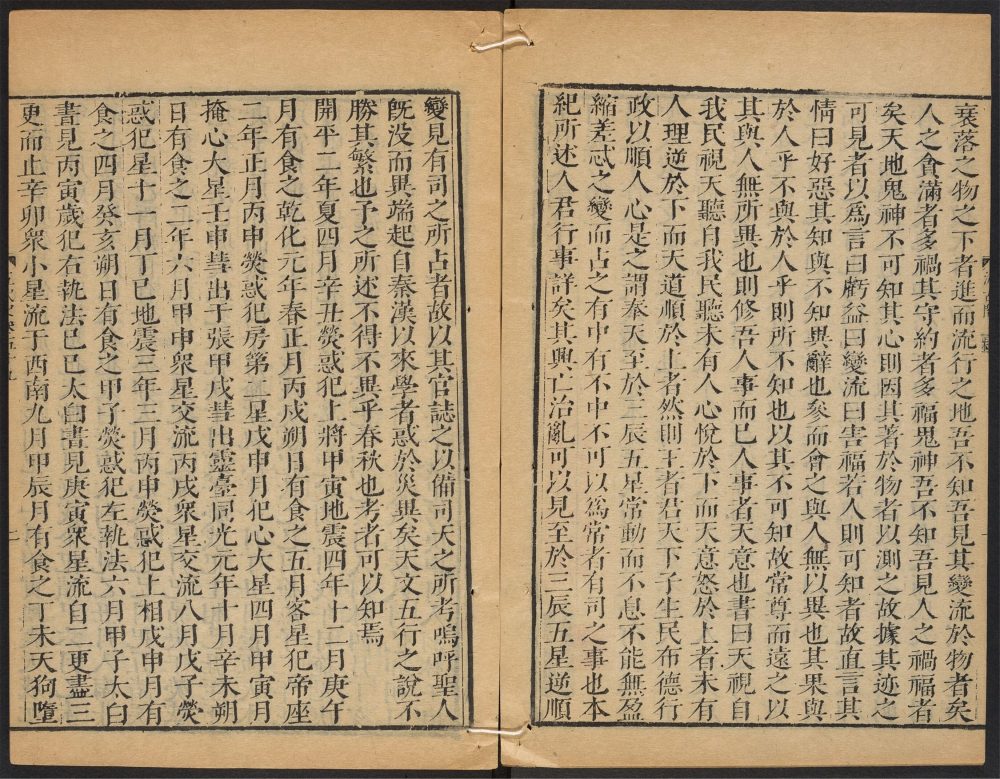 衰落之物之下者進而流行之地吾不知吾見其變流於物者矣
人之貪滿者多禍其守約者多福鬼神吾不知吾見人之禍福者
矣天地鬼神不可知其心則因其著於物者以測之故據其迹之
可見者以爲言曰虧益曰變流曰害福若人則可知者故直言其
情曰好惡其知與不知異辭也參而會之與人無以異也其果與
於人乎不與於人乎則所不知也以其不可知故常尊而遠之以
其與人無所異也則修吾人事而已人事者天意也書曰天視自
我民視天聽自我民聽未有人心悅於下而天意怒於上者未有
人理逆於下而天道順於上者然則王者君天下子生民布德行
政以順人心是之謂奉天至於三辰五星常動而不息不能無盈
縮差忒之變而占之有中有不中不可以爲常者有司之事也本
紀所述人君行事詳矣其興亡治亂可以見至於三辰五星逆順
變見有司之所占者故以其官誌之以備司天之所考嗚呼聖人
既没而異端起自秦漢以來學者惑於災異矣天文五行之說不
勝其繁也予之所述不得不異乎春秋也考者可以知焉
開平二年夏四月辛丑熒惑犯上將甲寅地震四年十二月庚午
月有食之乾化元年春正月丙戌朔日有食之五月客星犯帝座
二年正月丙申熒惑犯房第二星戊申月犯心大星四月甲寅月
掩心大星壬申彗出于張甲戌彗出靈臺同光元年十月辛未朔
日有食之二年六月甲申衆星交流丙戌衆星交流八月戊子熒
惑犯星十一月丁巳地震三年三月丙申熒惑犯上相戊申月有
食之四月癸亥朔日有食之甲子熒惑犯左執法六月甲子太白
晝見丙寅歲犯右執法己巳太白晝見庚寅衆星流自二更盡三
更而止辛卯衆小星流于西南九月甲辰月有食之丁未天狗墮